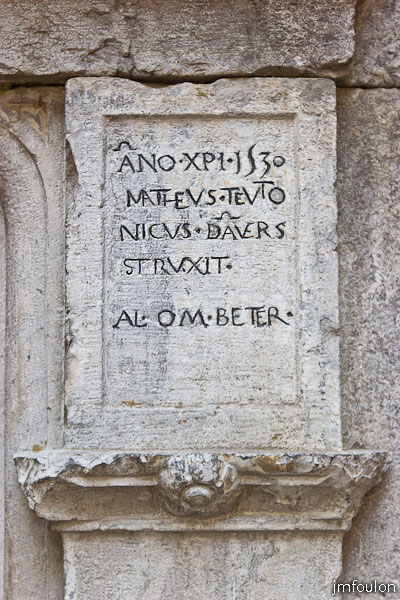 ÃNO·XPI·1530
MATHEVS·TEVTO
NICVS·DÃVERS
STRVXIT·
AL·OM·BETER·
jmfoulon